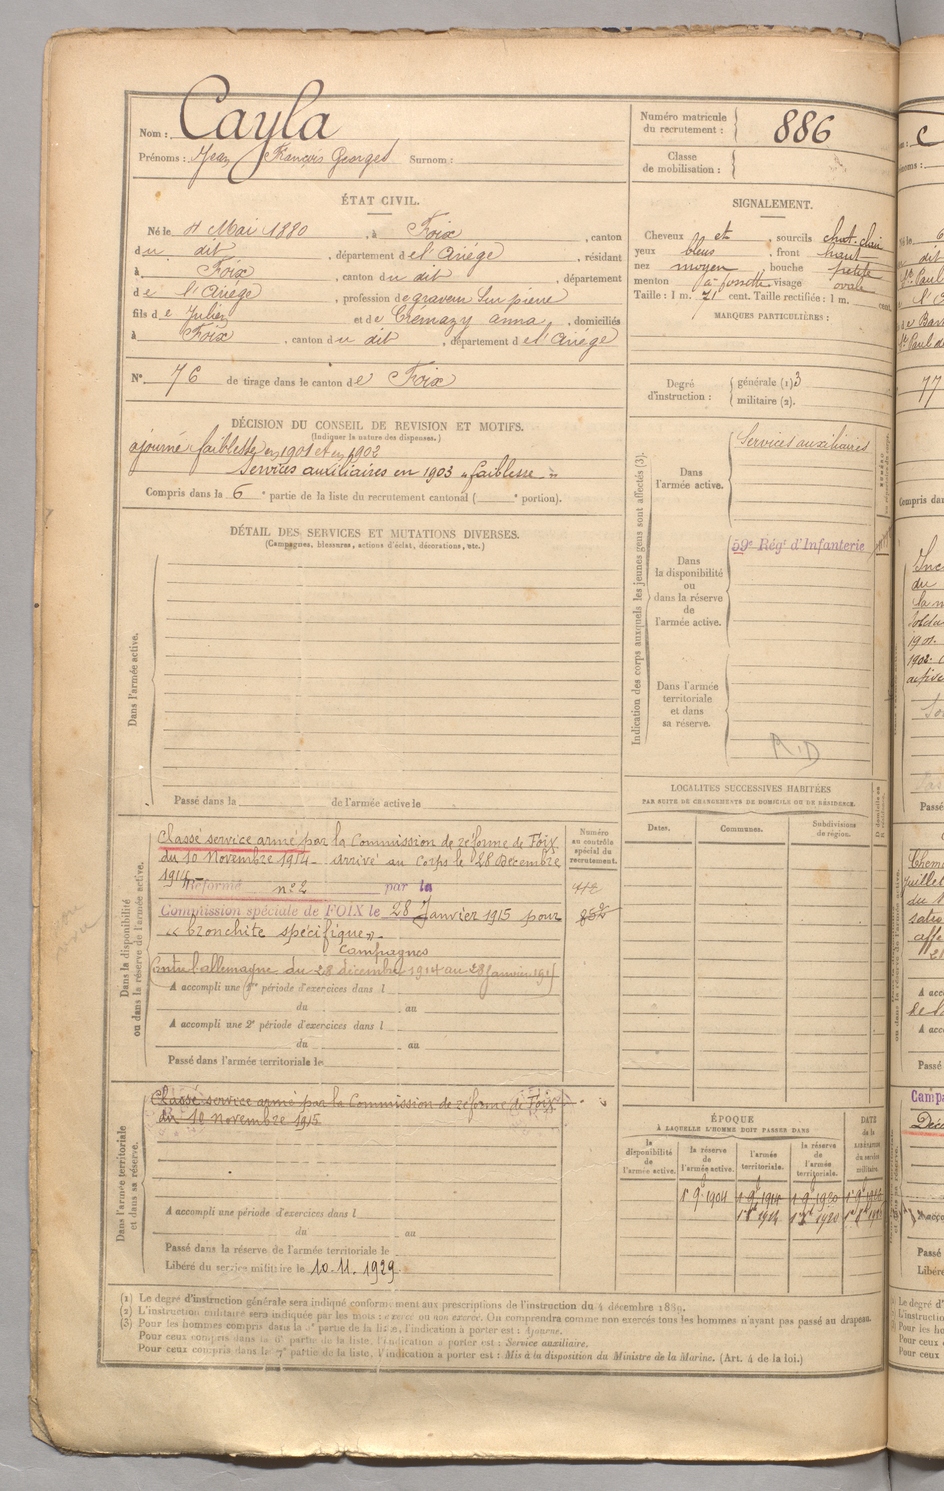 Nom : Cayla
Prénoms : Jean François Georges Surnom :
Numéro matricule du recrutement : 886
Classe de mobilisation :
ÉTAT CIVIL.
Né le 4 Mai 1880, à Foix, canton
du dit, département de l'Ariège, résidant
à Foix, canton du dit, département
de l'Ariège, profession de graveur sur pierre
fils de Julien et de Cremazy anna, domiciliés
à Foix, canton du dit, département de l'Ariège
N° 76 de tirage dans le canton de Foix
SIGNALEMENT.
Cheveux et, sourcils chat. clair
yeux bleus, front haut
nez moyen, bouche petite
menton à fossette visage ovale
Taille : 1 m. 71 cent. Taille rectifiée : 1 m. cent.
MARQUES PARTICULIÈRES :
Degré d'instruction : générale (1) 3
militaire (2).
DÉCISION DU CONSEIL DE REVISION ET MOTIFS.
(Indiquer la nature des dispenses.)
ajourné faiblesse en 1901 et en 1902
Services auxiliaires en 1903 "faiblesse"
Compris dans la 6e partie de la liste du recrutement cantonal ( e portion).
DÉTAIL DES SERVICES ET MUTATIONS DIVERSES.
(Campagnes, blessures, actions d'éclat, décorations, etc.)
Dans l'armée active.
Passé dans la de l'armée active le
Indication des corps auxquels les jeunes gens sont affectés (3).
Dans l'armée active.
Services auxiliaires
Dans la disponibilité ou dans la réserve de l'armée active.
59e Régt d'Infanterie
Dans l'armée territoriale et dans sa réserve.
R.D
LOCALITES SUCCESSIVES HABITÉES
PAR SUITE DE CHANGEMENTS DE DOMICILE OU DE RÉSIDENCE.
Dates. Communes. Subdivisions de région.
Dans la disponibilité ou dans la réserve de l'armée active.
Numéro au contrôle spécial du recrutement.
Classé service armé par la Commission de réforme de Foix
du 10 Novembre 1914 - arrivé au Corps le 28 Décembre
1914 -
Réformé n° 2 par la
Commission spéciale de FOIX le 28 Janvier 1915 pour
"bronchite spécifique".
Campagnes
Contre l'allemagne du 28 décembre 1914 au 28 Janvier 1915
A accompli une 1re période d'exercices dans l
du au
A accompli une 2e période d'exercices dans l
du au
Passé dans l'armée territoriale le
Dans l'armée territoriale et dans sa réserve.
Classé service armé par la Commission de réforme de Foix
du 10 novembre 1915
A accompli une période d'exercices dans l
du au
Passé dans la réserve de l'armée territoriale le
Libéré du service militaire le 10.11.1929
ÉPOQUE
À LAQUELLE L'HOMME DOIT PASSER DANS
DATE de la LIBÉRATION du service militaire.
la disponibilité de l'armée active.
la réserve de l'armée active.
l'armée territoriale.
la réserve de l'armée territoriale.
1r 9e 1904 1 9e 1914 1 9e 1920
(1) Le degré d'instruction générale sera indiqué conformément aux prescriptions de l'instruction du 4 décembre 1889.
(2) L'instruction militaire sera indiquée par les mots : exercé ou non exercé. On comprendra comme non exercés tous les hommes n'ayant pas passé au drapeau.
(3) Pour les hommes compris dans la 5e partie de la liste, l'indication à porter est : Ajourné.
Pour ceux compris dans la 6e partie de la liste, l'indication à porter est : Service auxiliaire.
Pour ceux compris dans la 7e partie de la liste, l'indication à porter est : Mis à la disposition du Ministre de la Marine. (Art. 4 de la loi.)